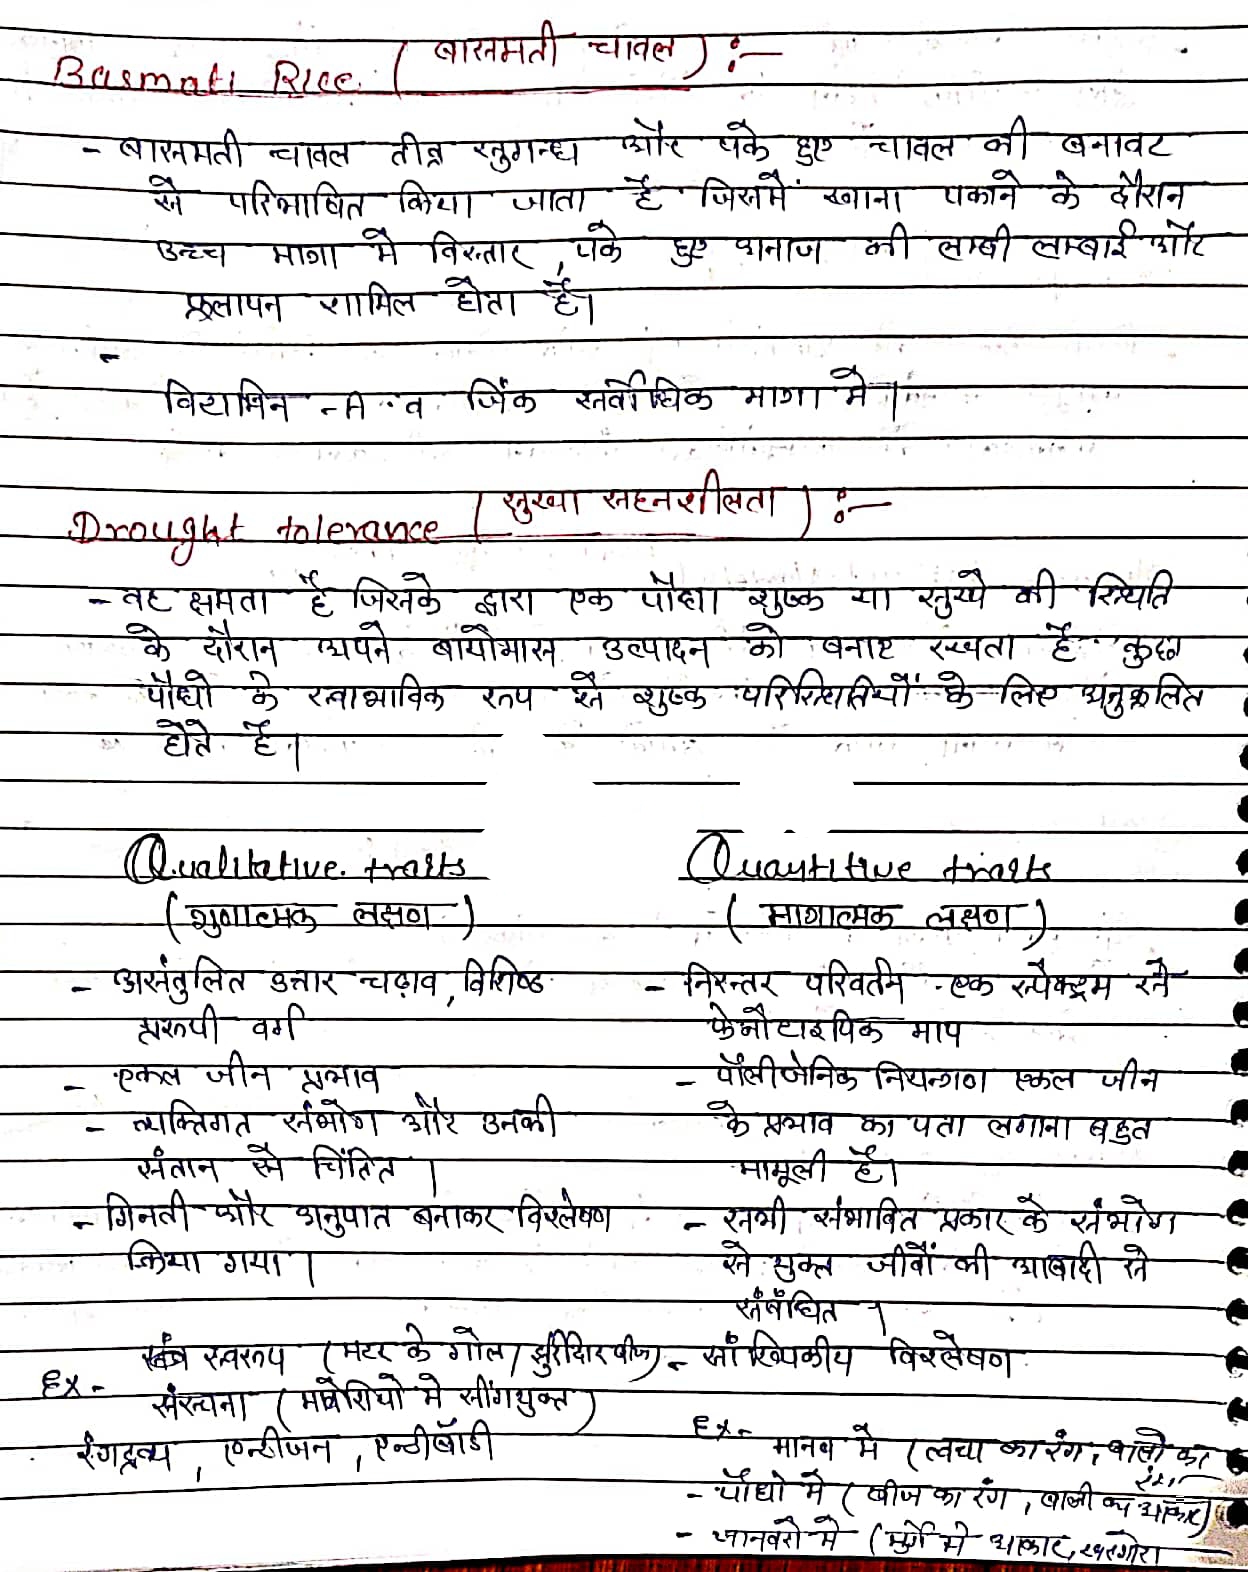 Basmati Rice (बासमती चावल) :-
- बासमती चावल तीव्र सुगन्ध और पके हुए चावल की बनावट
से परिभाषित किया जाता है जिसमें खाना पकाने के दौरान
उच्च मात्रा मे विस्तार, पके हुए अनाज की लम्बी लम्बाई और
फ्लापन शामिल होता है।
-
विटामिन -A व जिंक सर्वाधिक मात्रा मे।
Drought tolerance (सुखा सहनशीलता) :-
- वह क्षमता है जिसके द्वारा एक पौधा शुष्क या सुखे की स्थिति
के दौरान अपने बायोमास उत्पादन को बनाए रखता है कुछ
पौधो के स्वाभाविक रूप से शुष्क परिस्थितियों के लिए अनुकूलित
होते है।
Qualitative traits
(गुणात्मक लक्षण)
- असंतुलित उतार चढ़ाव, विशिष्ठ
प्ररूपी वर्ग
- एकल जीन प्रभाव
- व्यक्तिगत संभोग और उनकी
संतान से चिंतित।
- गिनती और अनुपात बनाकर विश्लेषण
किया गया।
Ex- स्वरूप (मटर के गोल/झुर्रीदार बीज)
संरचना (मवेशियो मे सींगयुक्त)
रंगद्रव्य, एन्टीजन, एन्टीबॉडी
Quantitive traits
(मात्रात्मक लक्षण)
- निरन्तर परिवर्तन एक स्पेक्ट्रम से
फेनोटाइपिक माप
- पॉलीजेनिक नियन्त्रण एकल जीन
के प्रभाव का पता लगाना बहुत
मामूली है।
- सभी संभावित प्रकार के संभोग
से युक्त जीवों की आबादी से
संबंधित।
- सांख्यिकीय विश्लेषण
Ex- मानव मे (त्वचा का रंग, बालो का
रंग,
- पौधो मे (बीज का रंग, बाली का आकार)
- जानवरो मे (मुर्गे मे आकार, खरगोश